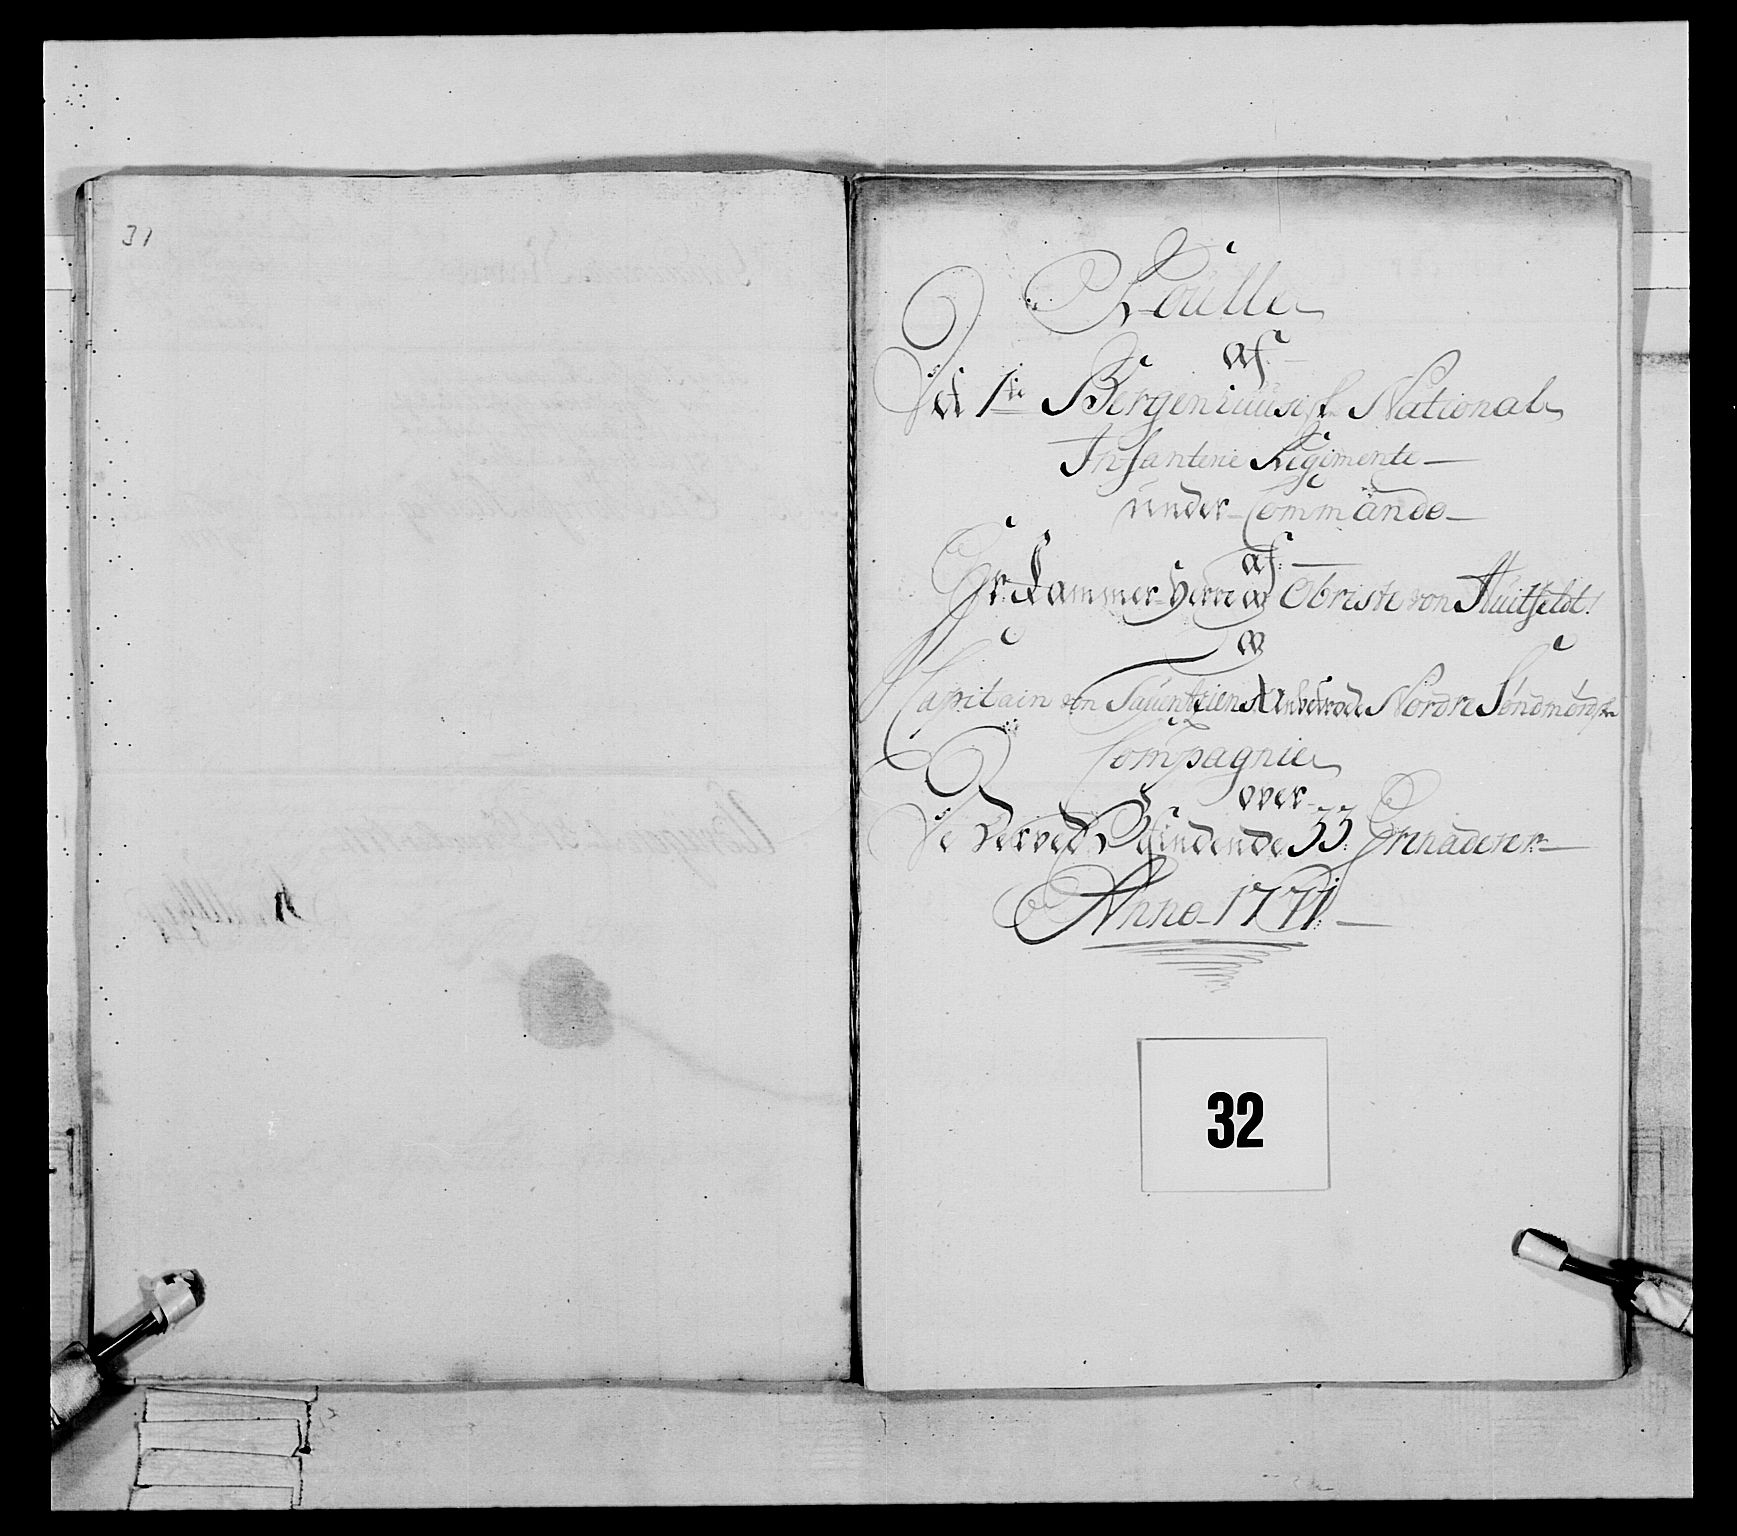 31
Roulle
af
Det 1te Bergenhuusisk National
Infanterie Regimente
under Commando
af
Hr. Kammer-Herre og Obriste von Huitfeldt
og
Capitain von Anbetrode Nordre Söndmörske
Compagnie
over
De Herved Befindende 33 Grenaderer
Anno 1771
32